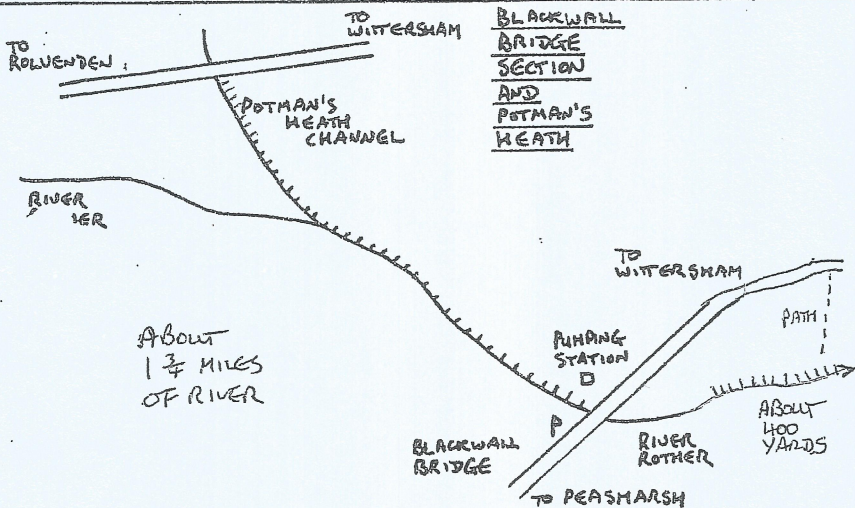 TO
ROLVENDEN
TO
WITTERSHAM
BLACKWALL
BRIDGE
SECTION
AND
POTMAN'S
HEATH
POTMAN'S
HEATH
CHANNEL
RIVER
TO
WITTERSHAM
PATH
ABOUT
1 3/4 MILES
OF RIVER
PUMPING
STATION
P
BLACKWALL
BRIDGE
RIVER
ROTHER
ABOUT
400
YARDS
TO PEASMARSH